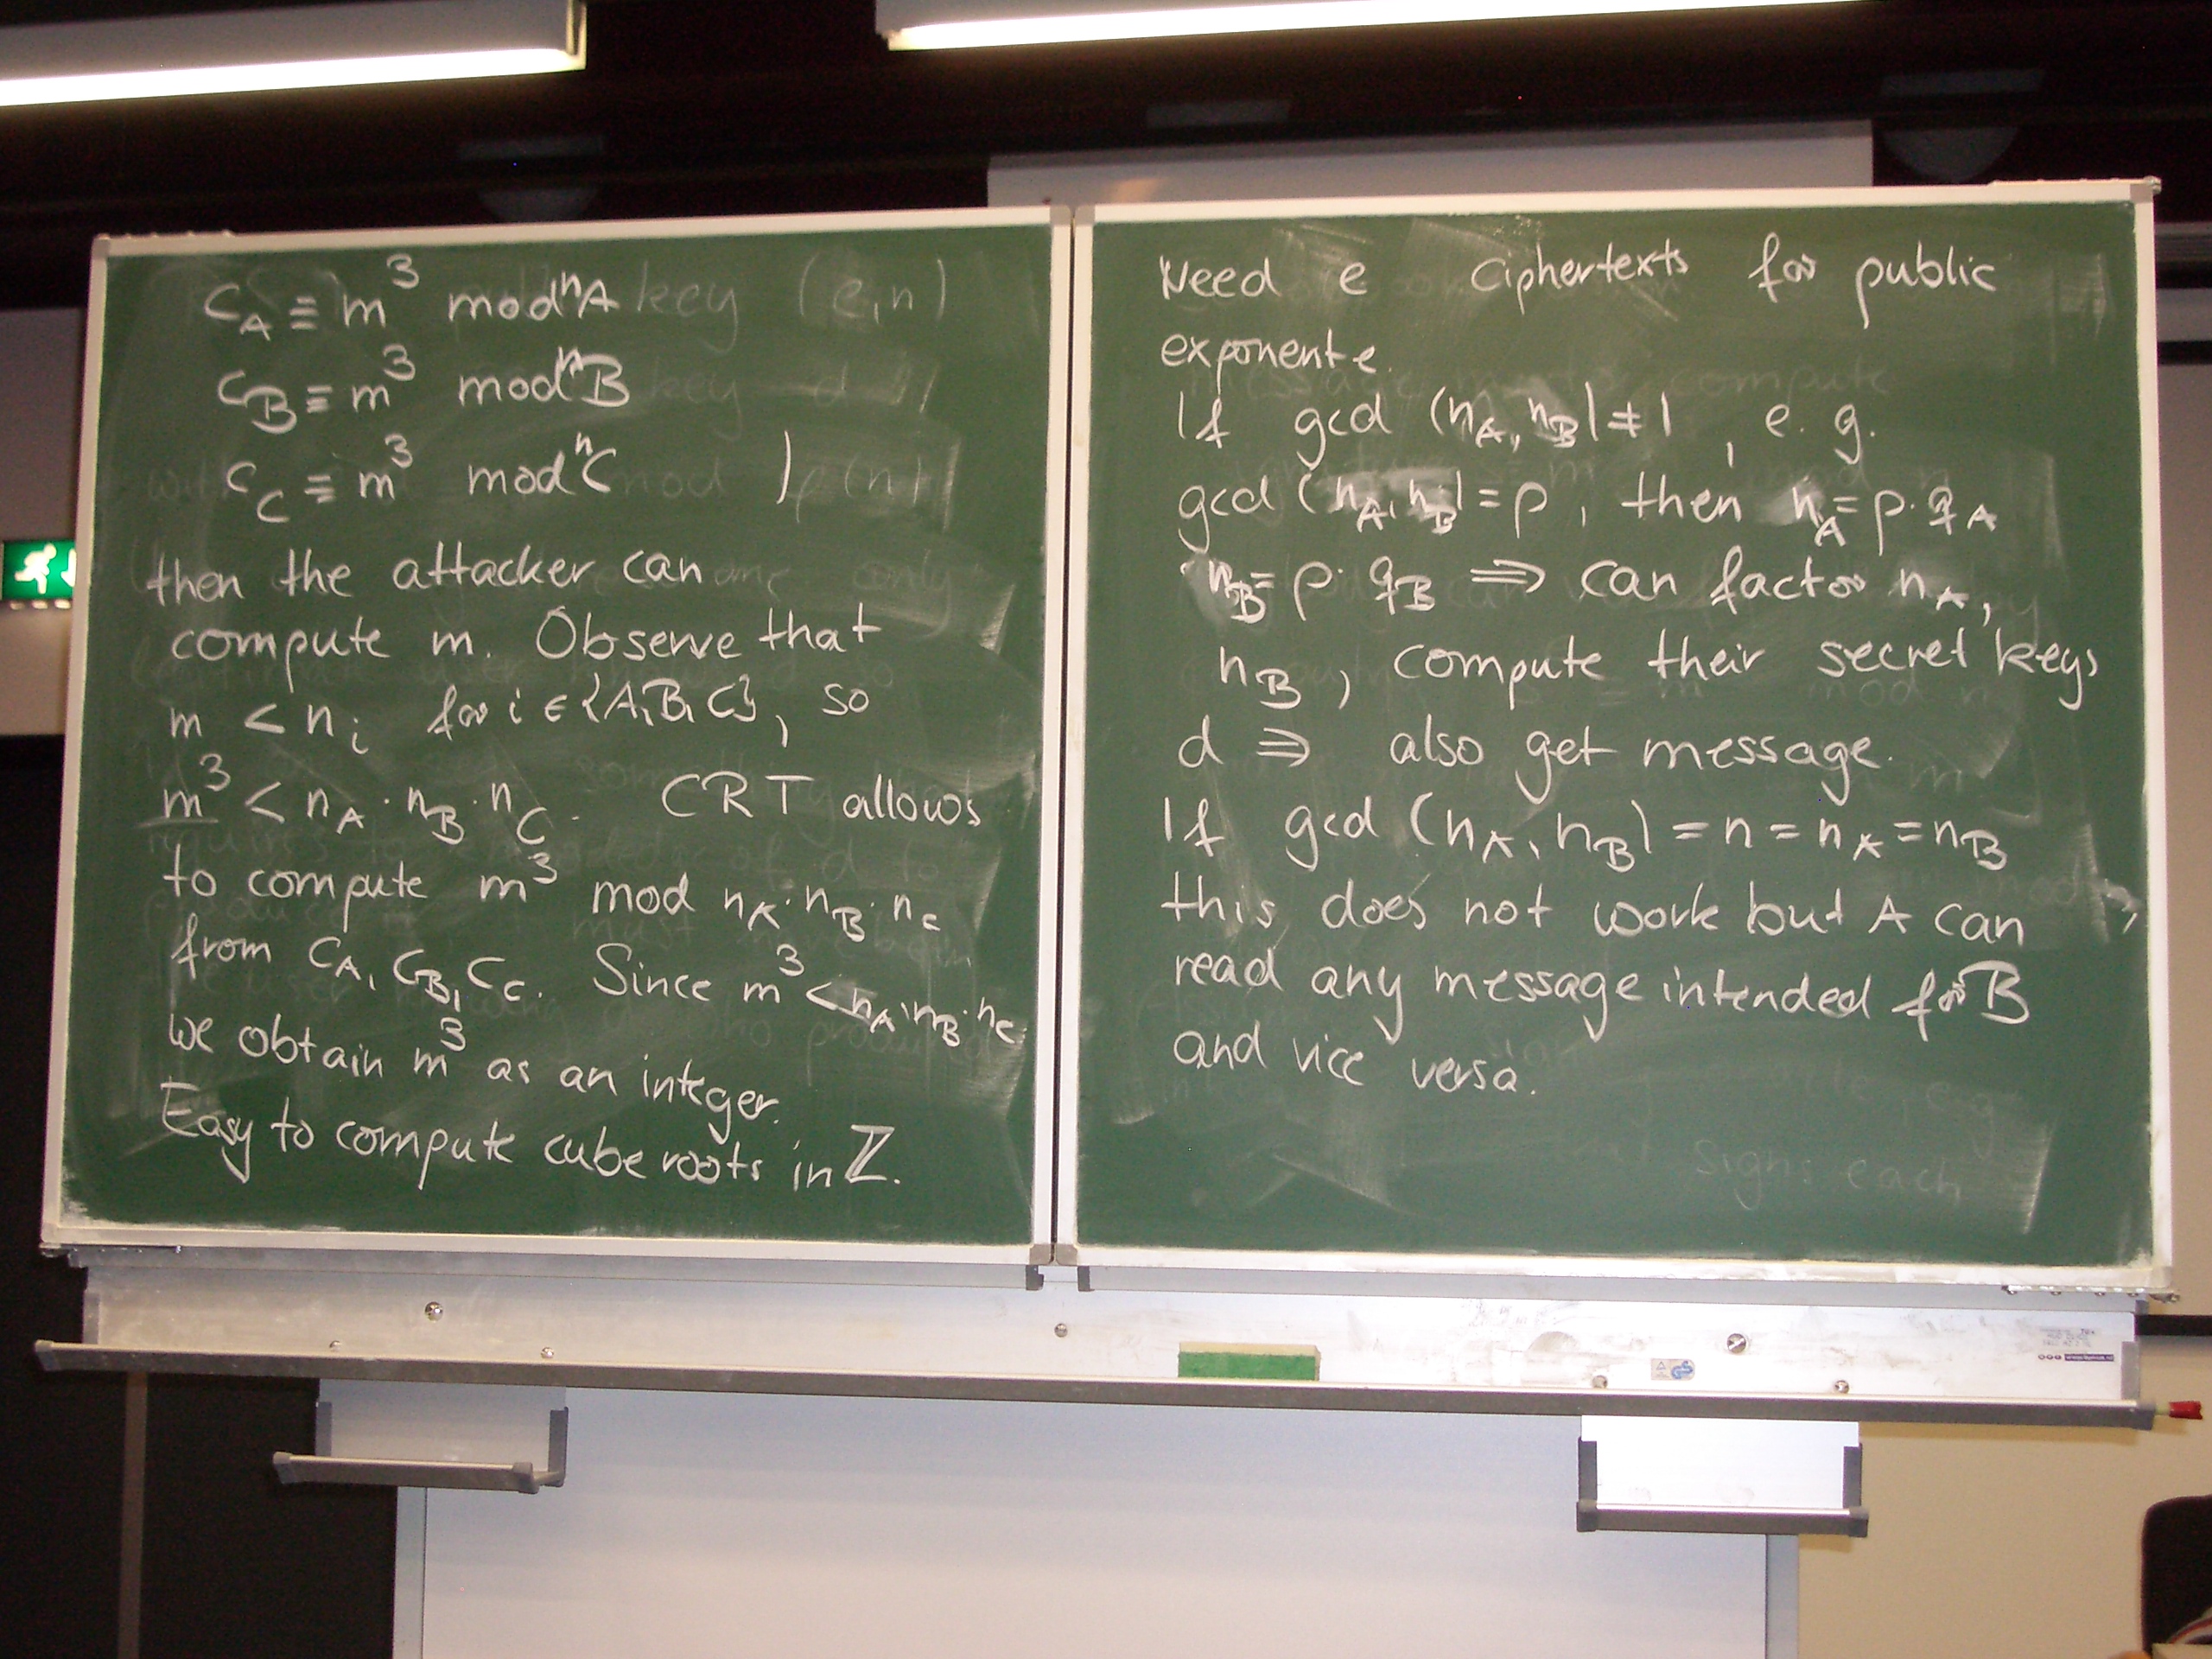 c_A ≡ m^3 mod n_A
c_B ≡ m^3 mod n_B
c_C ≡ m^3 mod n_C
then the attacker can
compute m. Observe that
m < n_i for i ∈ {A, B, C}, so
m^3 < n_A · n_B · n_C. CRT allows
to compute m^3 mod n_A · n_B · n_C
from C_A, C_B, C_C. Since m^3 < n_A · n_B · n_C
we obtain m^3 as an integer.
Easy to compute cube roots in ℤ.
Need e ciphertexts for public
exponent e.
If gcd (n_A, n_B) ≠ 1, e.g.
gcd (n_A, n_B) = p, then n_A = p · q_A
n_B = p · q_B ⇒ can factor n_A,
n_B, compute their secret keys
d ⇒ also get message.
If gcd (n_A, n_B) = n = n_A = n_B
this does not work but A can
read any message intended for B
and vice versa.
signs each